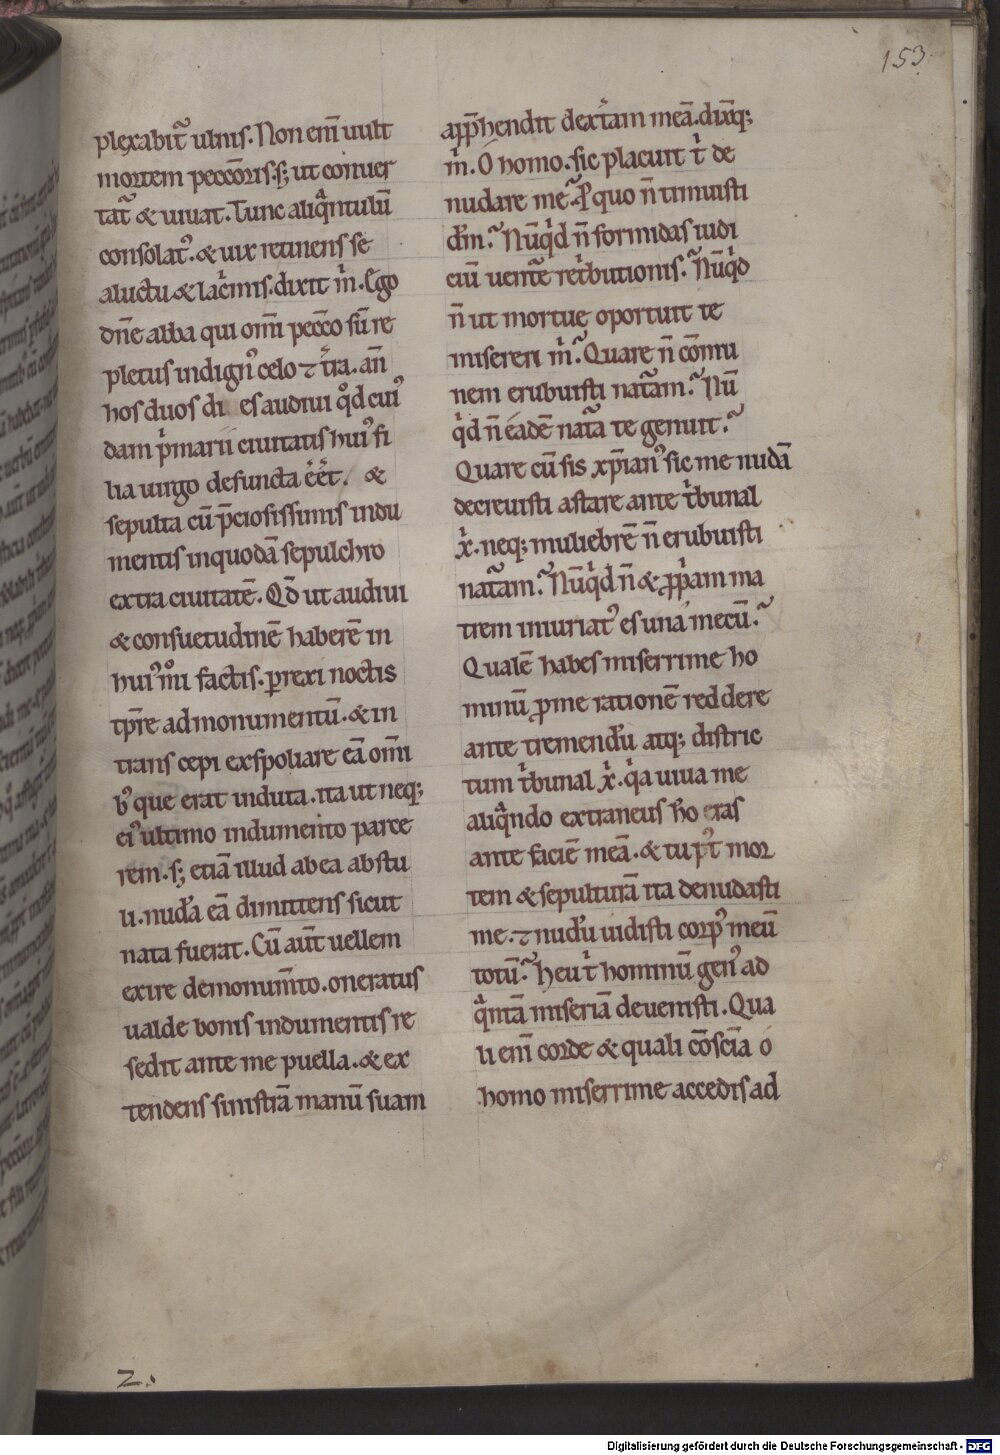 153
plexabit᷒ ulnis. Non eni᷒ uult
mortem pecc̄oris. s; ut conuer
tat᷒ & uiuat. Tunc aliqͣntulū
consolat᷒. & uix retinens se
a luctu & lac̓mis. dixit m̓. Ego
dn̄e abba qui om̄i pecc̄o sū re
pletus indign᷒ celo ⁊ t̓ra. an̄
hos duos di es audiui qͦd cui᷒
dam p̓marii ciuitatis hui᷒ fi
lia uirgo defuncta eēt. &
sepulta cū p̄ciosissimis indu
mentis in quodā sepulchro
extra ciuitatē. Qd̄ ut audiui
& consuetudinē haberē in
hui᷒mͦi factis. perrexi noctis
tp̄re ad monumentū. & in
trans cepi exspoliare eā om̄i
b᷒ que erat induta. ita ut neq;
ei᷒ ultimo indumento parce
rem. s; etiā illud ab ea abstu
li. nudā eā dimittens sicut
nata fuerat. Cū aūt uellem
exire de monum̄to. oneratus
ualde bonis indumentis re
sedit ante me puella. & ex
tendens sinistrā manū suam
app̄hendit dext̓am meā. dixitq;
m̓. O homo. sic placuit t̓ de
nudare me? Pro quo n̄ timuisti
dm̄? Nūq̓d n̄ formidas iudi
ciū uentur̄e ret̓butionis? Nūq̓d
n̄ ut mortue oportuit te
misereri m̓? Quare n̄ cōmu
nem erubuisti nat̓am? Nū
q̓d n̄ eadē nat̓a te genuit?
Quare cū sis xp̄ian᷒ sic me nudā
decreuisti astare ante t̓bunal
x̓. neq; muliebrē n̄ erubuisti
nat̓am? Nūq̓d n̄ & prop̓am ma
trem iniuriat᷒ es una mecū?
Qualē habes miserrime ho
minū pro me rationē reddere
ante tremendū atq; distric
tum t̓bunal x̓. qͥa uiua me
aliqͣndo extraneus ho eras
ante faciē meā. & tu p᷒t mor
tem & sepulturā ita denudasti
me. ⁊ nudū uidisti corp᷒ meū
totū? Heu t̓ hominū gen᷒ ad
qͣntā miseriā deuenisti. Qua
li eni᷒ corde & quali cōscīa o
homo miserrime accedis ad
2.
Digitalisierung gefördert durch die Deutsche Forschungsgemeinschaft - DFG